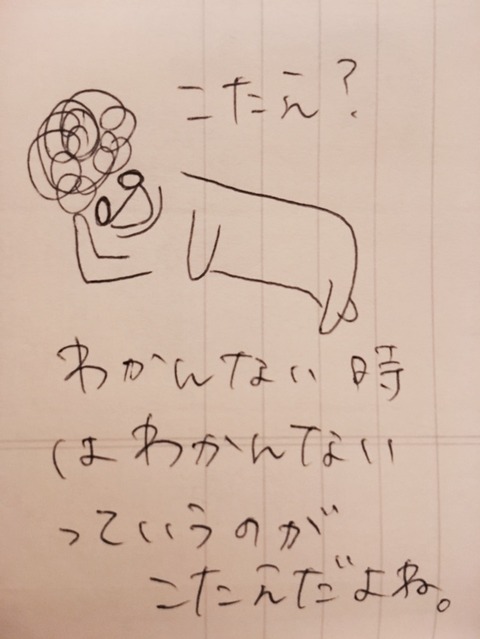 こたえ?
わかんない時
はわかんない
っていうのが
こたえだよね。